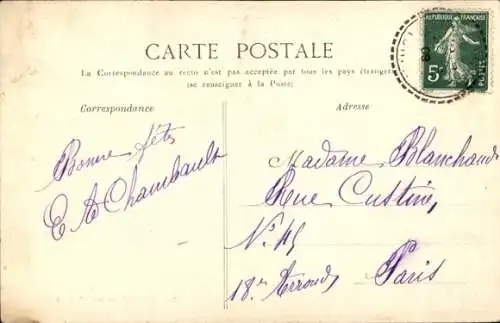 CARTE POSTALE
RÉPUBLIQUE FRANÇAISE
5c
POSTES
La Correspondance au recto n'est pas acceptée par tous les pays étrangers
(se renseigner à la Poste)
Correspondance
Adresse
Bonne fête
E A Chambault
Madame Blanchand
Rue Custine,
N° 45
18e Arrond,
Paris